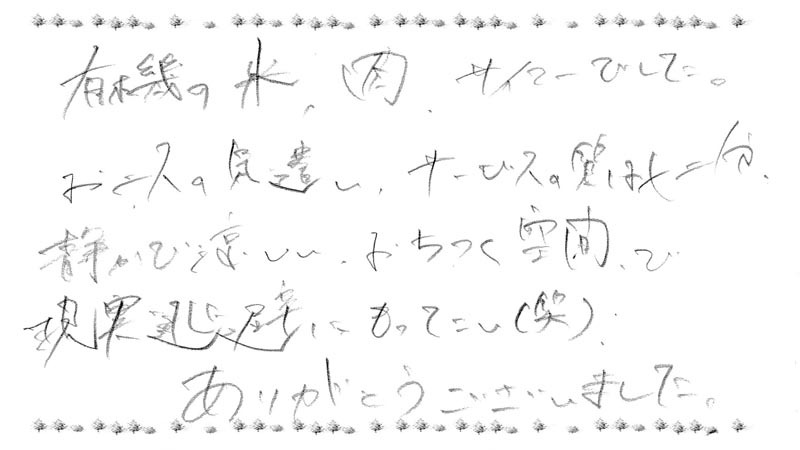 有機の米、肉、サイコーでした。
お二人の気遣い、サービスの質は十二分、
静かで涼しい、おちつく空間、で
現実逃避にもってこい(笑)。
ありがとうございました。